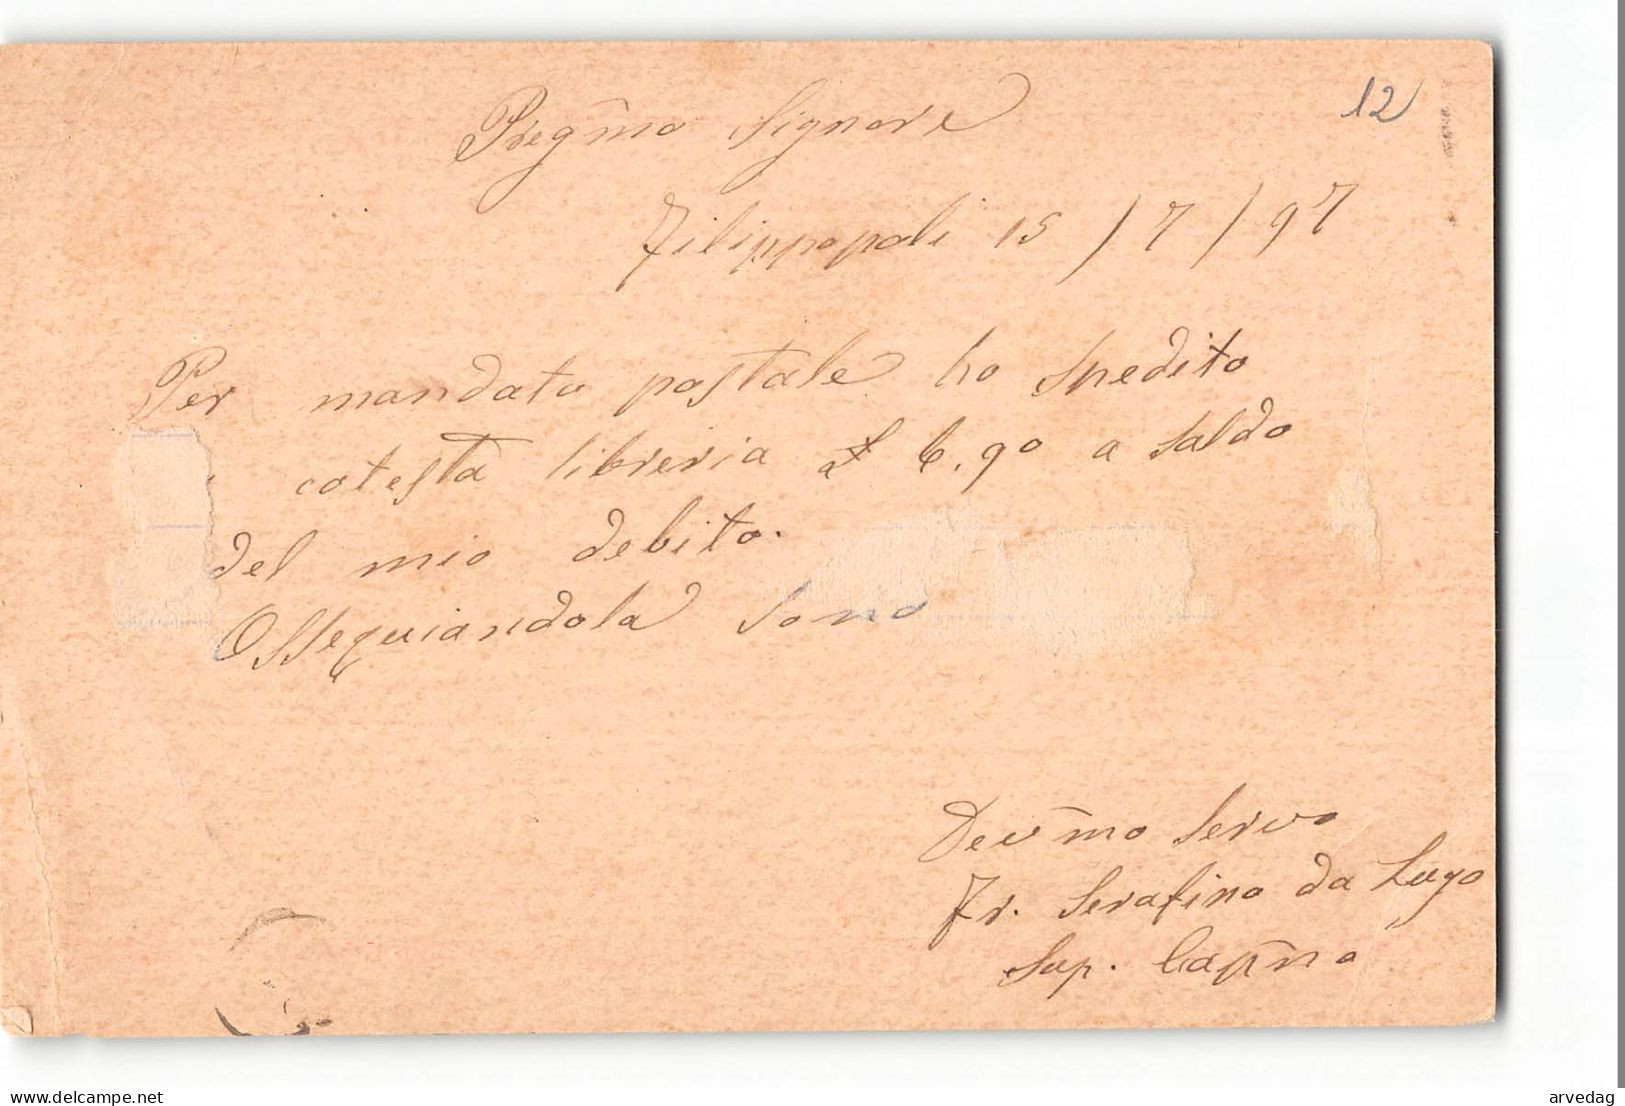 12
Preg̃mo Signore
Filippopoli 15 / 7 / 97
Per mandato postale ho spedito
cotesta libreria £ 6,90 a saldo
del mio debito.
Ossequiandola sono
Dev̄mo servo
Fr. Serafino da Lugo
Sup. Capño
delcampe.net
arvedag